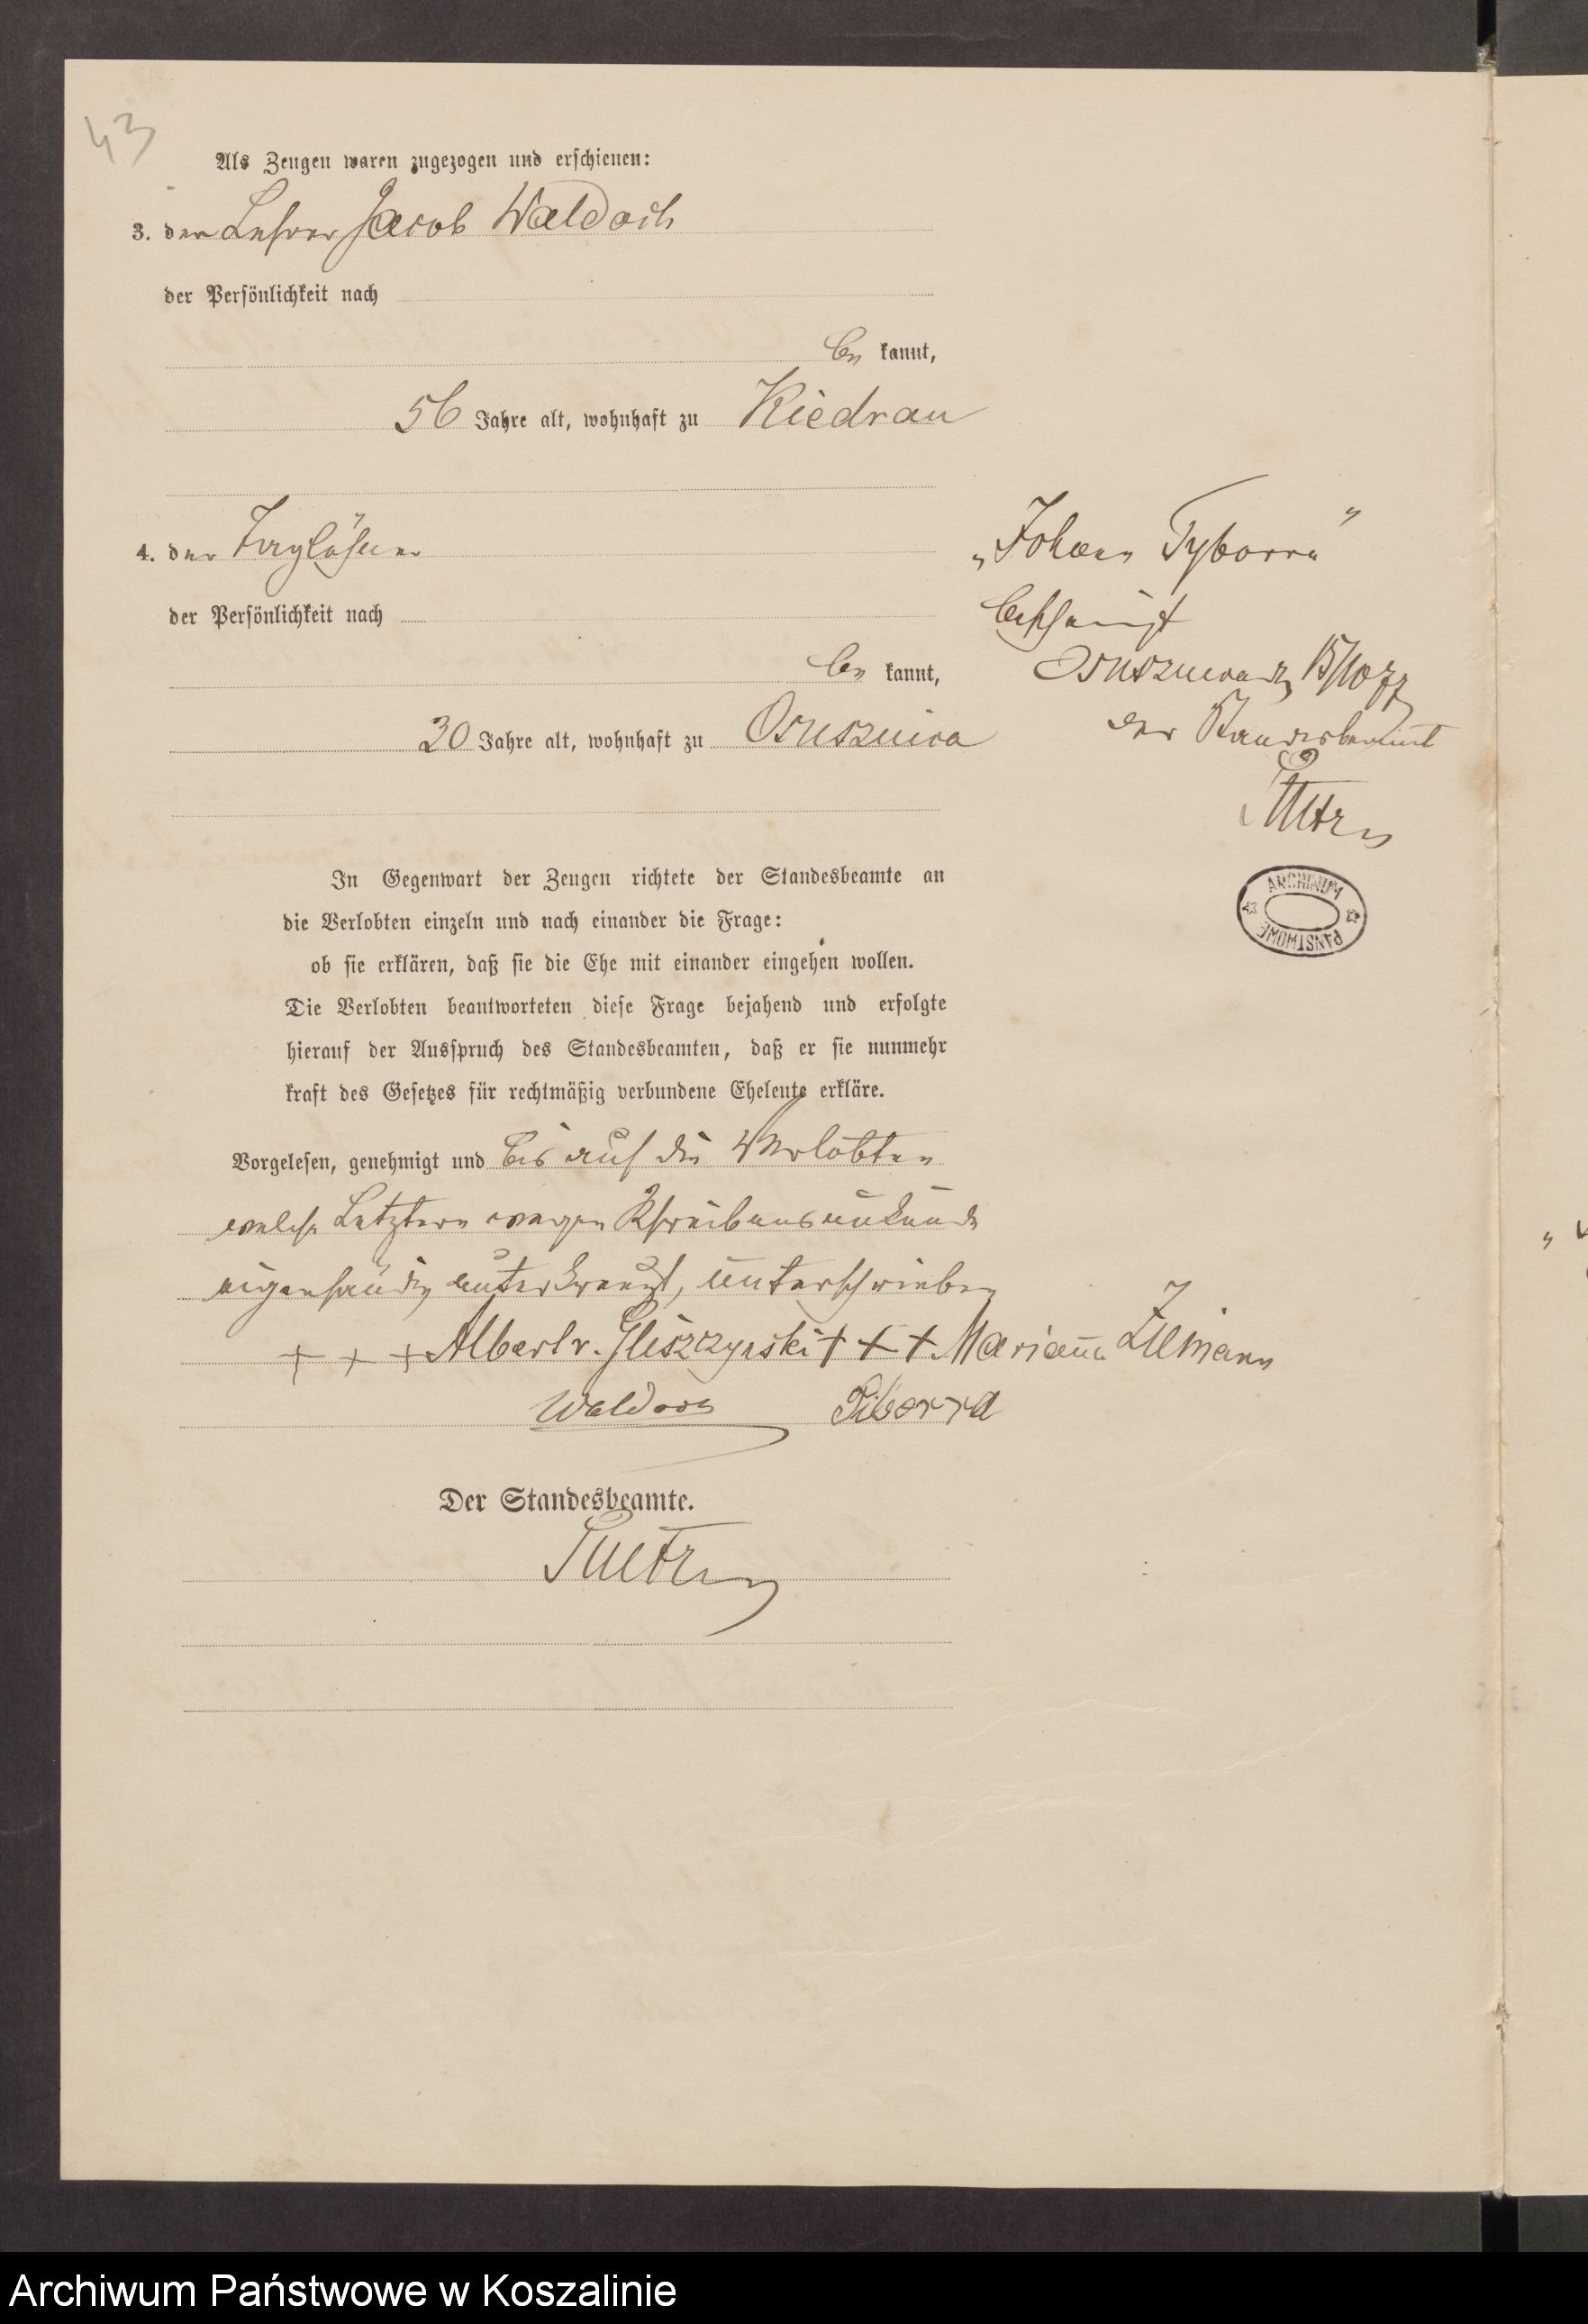 43
Als Zeugen waren zugezogen und erschienen:
3. der Lehrer Jacob Waldoch
der Persönlichkeit nach
be kannt,
56 Jahre alt, wohnhaft zu Kiedrau
4. der Taglöhner
„Johann Tyborra“
der Persönlichkeit nach
be kannt,
30 Jahre alt, wohnhaft zu Osusznica
bescheinigt
15/10 77
der Standesbeamt
In Gegenwart der Zeugen richtete der Standesbeamte an
die Verlobten einzeln und nach einander die Frage:
ob sie erklären, daß sie die Ehe mit einander eingehen wollen.
Die Verlobten beantworteten diese Frage bejahend und erfolgte
hierauf der Ausspruch des Standesbeamten, daß er sie nunmehr
kraft des Gesetzes für rechtmäßig verbundene Eheleute erkläre.
Vorgelesen, genehmigt und bis auf die Verlobten
welche Letztere wegen Schreibensunkunde
eigenhändig unterkreuzt, unterschrieben
+ + + Albert v. Gliszczynski + + + Marianna Zilmann
Waldoch Tiborra
Der Standesbeamte.
ARCHIWUM
PAŃSTWOWE
Archiwum Państwowe w Koszalinie